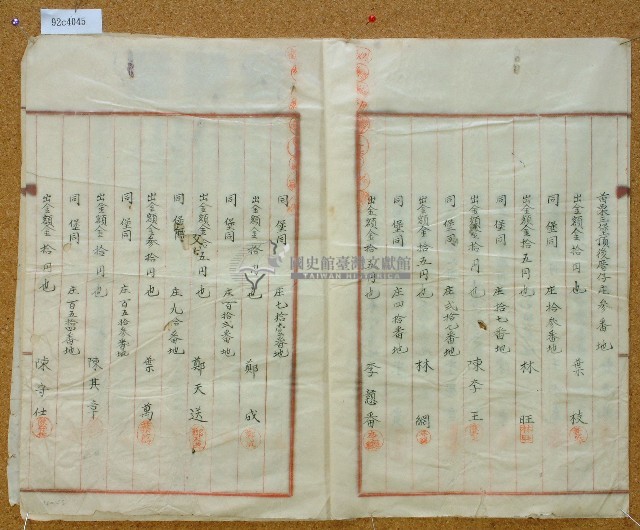 92c4045
苗栗三堡頂後厝子庄參番地
出金額金拾円也 葉枝
同堡同庄拾參番地
出金額金拾五円也 林旺
同堡同庄拾七番地
出金額金拾円也 陳李王
同堡同庄貳拾九番地
出金額金拾五円也 林網
同堡同庄四拾番地
出金額金拾五円也 李番
同堡同庄七拾壹番地
出金額金拾也 鄭成
同堡同庄百拾貳番地
出金額金五円也 鄭天送
同堡同庄九拾番地
出金額金參拾円也 葉萬
同堡同庄百五拾參番地
出金額金拾円也 陳其章
同堡同庄百五拾四番地
出金額金拾円也 陳守仕
國史館臺灣文獻館
TAIWAN HISTORICA